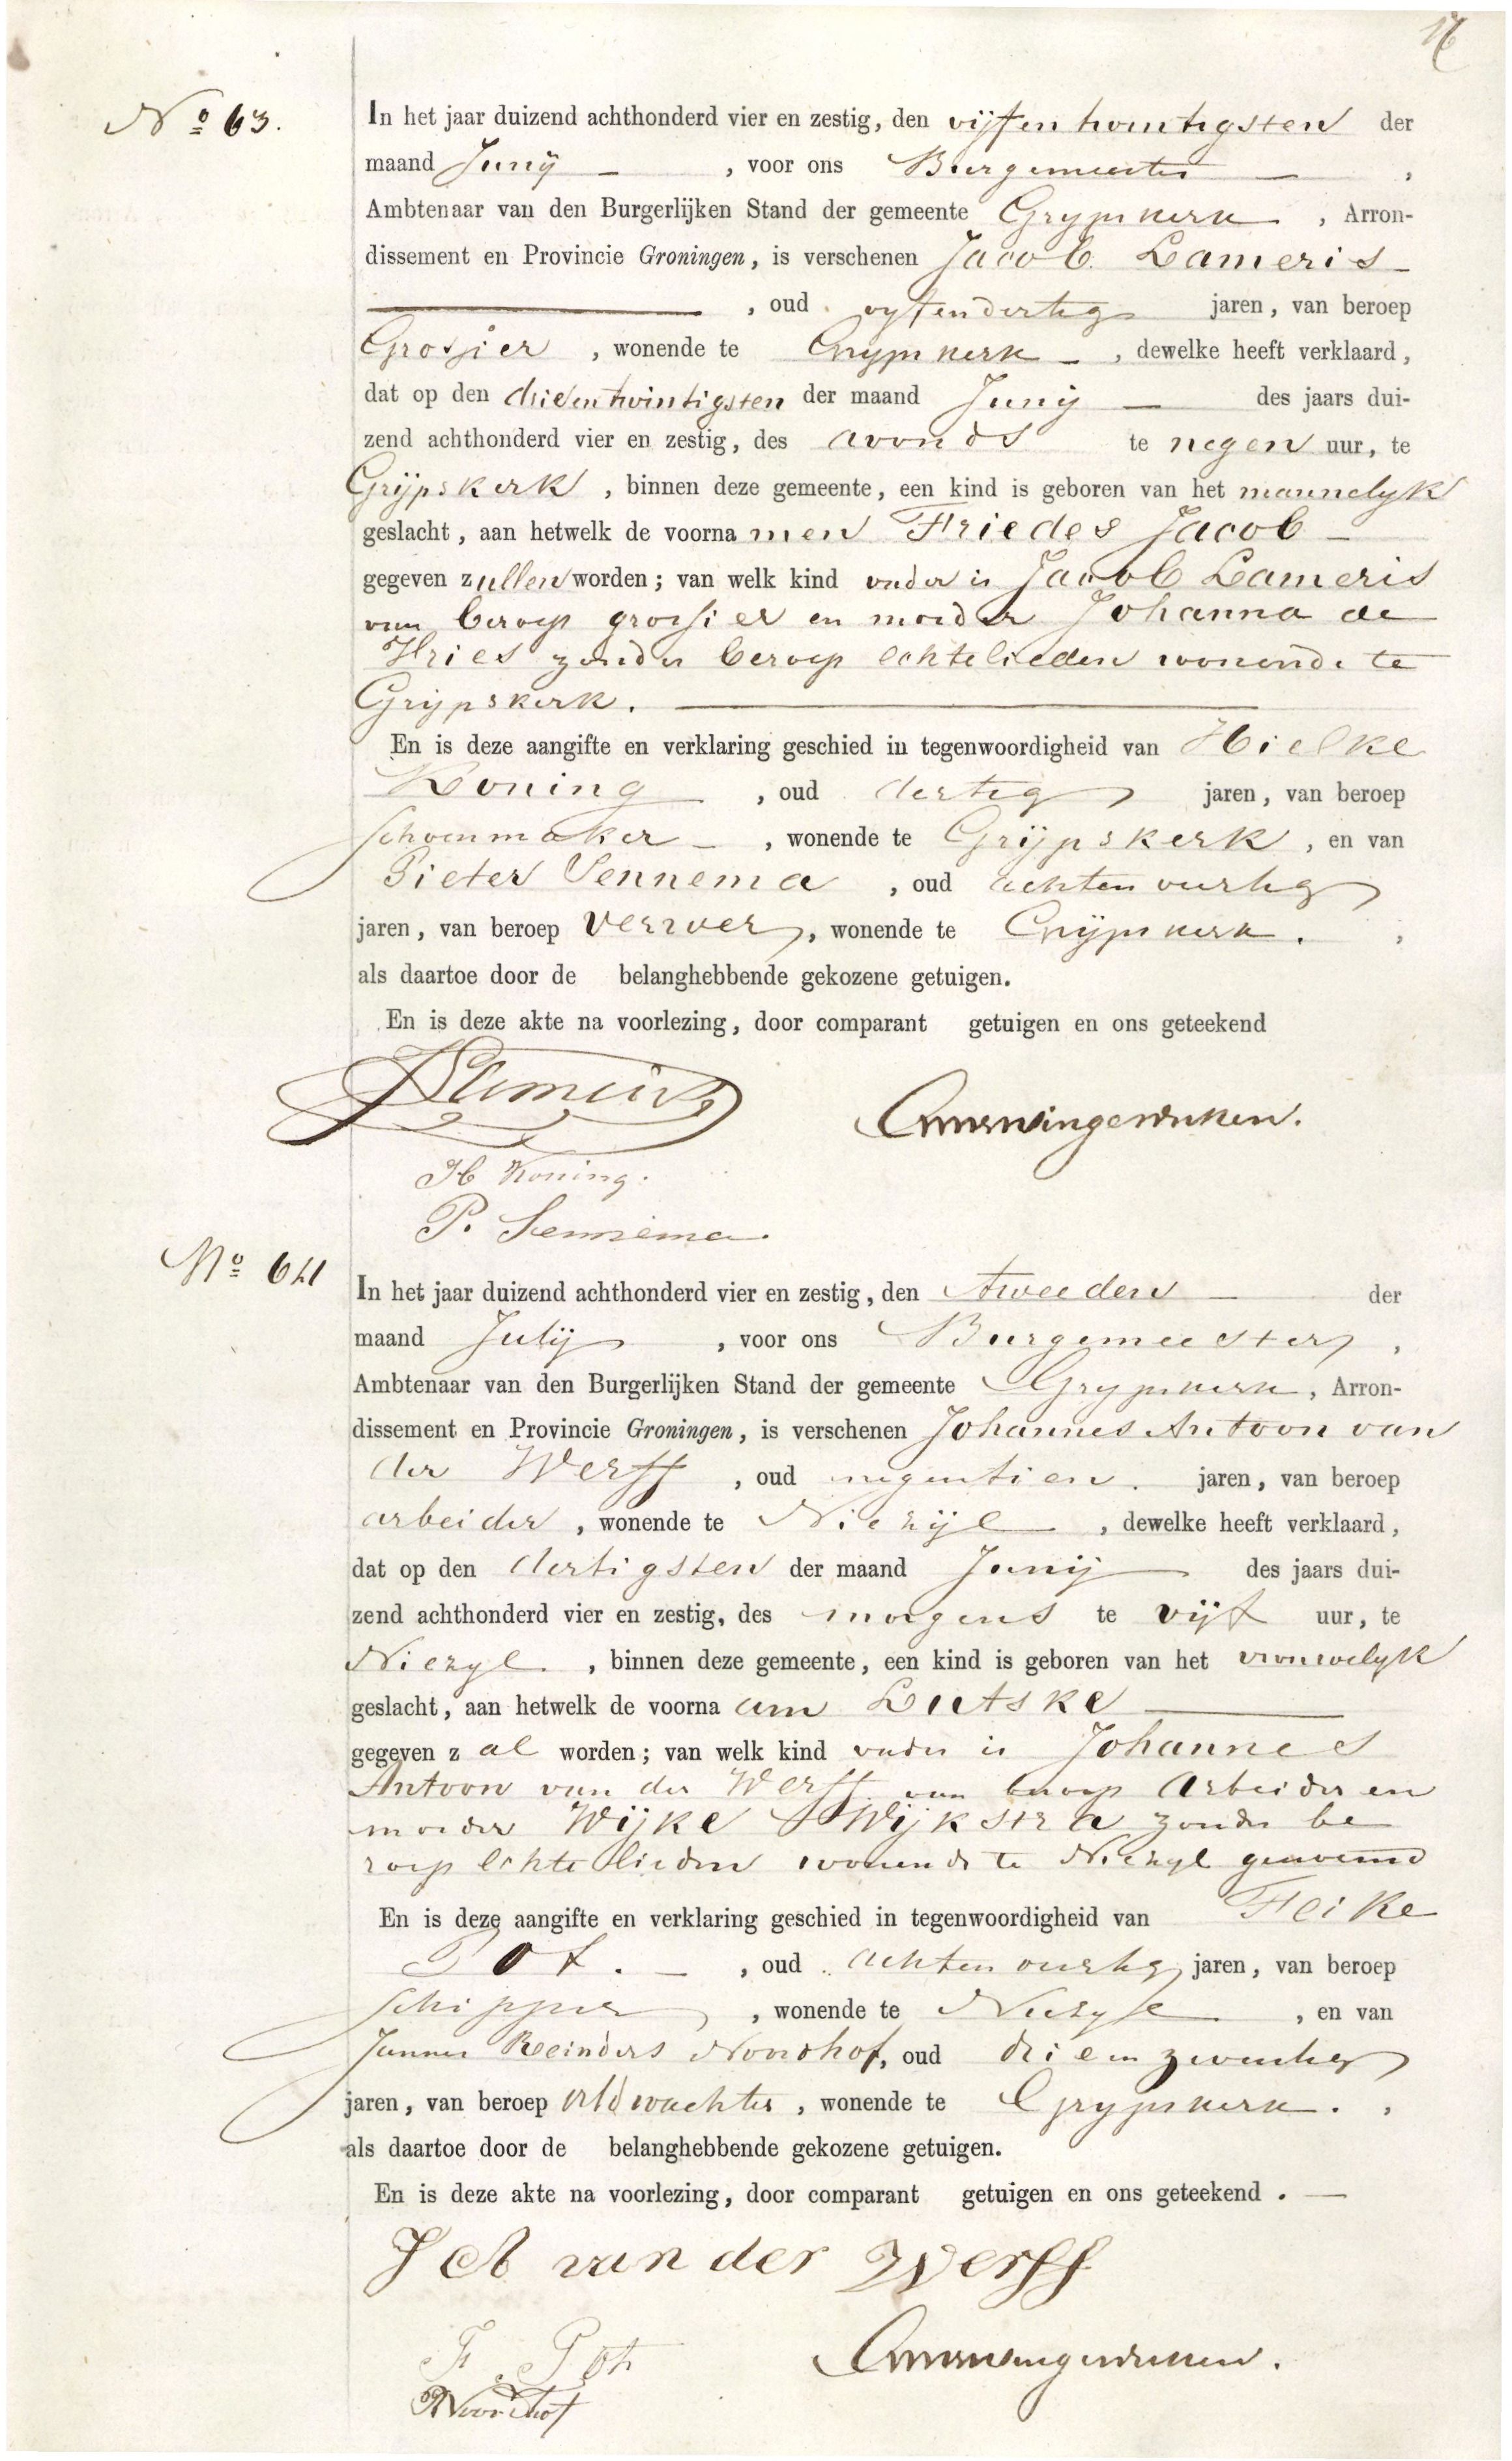 No 63.
In het jaar duizend achthonderd vier en zestig, den vijfentwintigsten der
maand Junij , voor ons Burgemeester ,
Ambtenaar van den Burgerlijken Stand der gemeente Grijpskerk , Arron-
dissement en Provincie Groningen, is verschenen Jacob Lameris
, oud vyfendertig jaren, van beroep
Grossier , wonende te Grijpskerk , dewelke heeft verklaard,
dat op den drieentwintigsten der maand Junij des jaars dui-
zend achthonderd vier en zestig, des avonds te negen uur, te
Grijpskerk , binnen deze gemeente, een kind is geboren van het mannelyk
geslacht, aan hetwelk de voorna men Friedes Jacob
gegeven zullen worden; van welk kind vader is Jacob Lameris
van beroep grossier en moeder Johanna de
Vries zonder beroep echtelieden wonende te
Grijpskerk.
En is deze aangifte en verklaring geschied in tegenwoordigheid van Hielke
Koning , oud dertig jaren, van beroep
schoenmaker , wonende te Grijpskerk , en van
Pieter Sennema , oud achtenveertig
jaren, van beroep verwer , wonende te Grijpskerk. ,
als daartoe door de belanghebbende gekozene getuigen.
En is deze akte na voorlezing, door comparant getuigen en ons geteekend
JLameris
H Koning.
P. Sennema.
No 64
In het jaar duizend achthonderd vier en zestig, den tweeden der
maand Julij , voor ons Burgemeester ,
Ambtenaar van den Burgerlijken Stand der gemeente Grypskerk , Arron-
dissement en Provincie Groningen, is verschenen Johannes Antoon van
der Werff , oud negentien jaren, van beroep
arbeider , wonende te Niezijl , dewelke heeft verklaard,
dat op den dertigsten der maand Junij des jaars dui-
zend achthonderd vier en zestig, des morgens te vijf uur, te
Niezyl , binnen deze gemeente, een kind is geboren van het vrouwelyk
geslacht, aan hetwelk de voorna am Lutske
gegeven z al worden; van welk kind vader is Johannes
Antoon van der Werff van beroep arbeider en
moeder Wijke Wijkstra zonder be
roep echtelieden wonende te Niezyl genoemd
En is deze aangifte en verklaring geschied in tegenwoordigheid van Feike
Pot. , oud achtenveertig jaren, van beroep
schipper , wonende te Niezyl , en van
Jannes Reinders Noordhof, oud drieenzeventig
jaren, van beroep veldwachter , wonende te Grypskerk. ,
als daartoe door de belanghebbende gekozene getuigen.
En is deze akte na voorlezing, door comparant getuigen en ons geteekend .
J A van der Werff
F. Pot
Noordhof